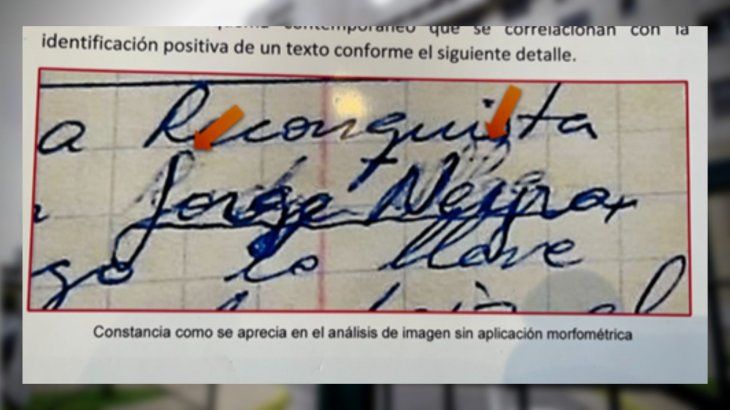 contemporáneo que se correlacionan con la
identificación positiva de un texto conforme el siguiente detalle.
a Reconquista
Jorge Neyra,
go lo lleve
Constancia como se aprecia en el análisis de imagen sin aplicación morfométrica